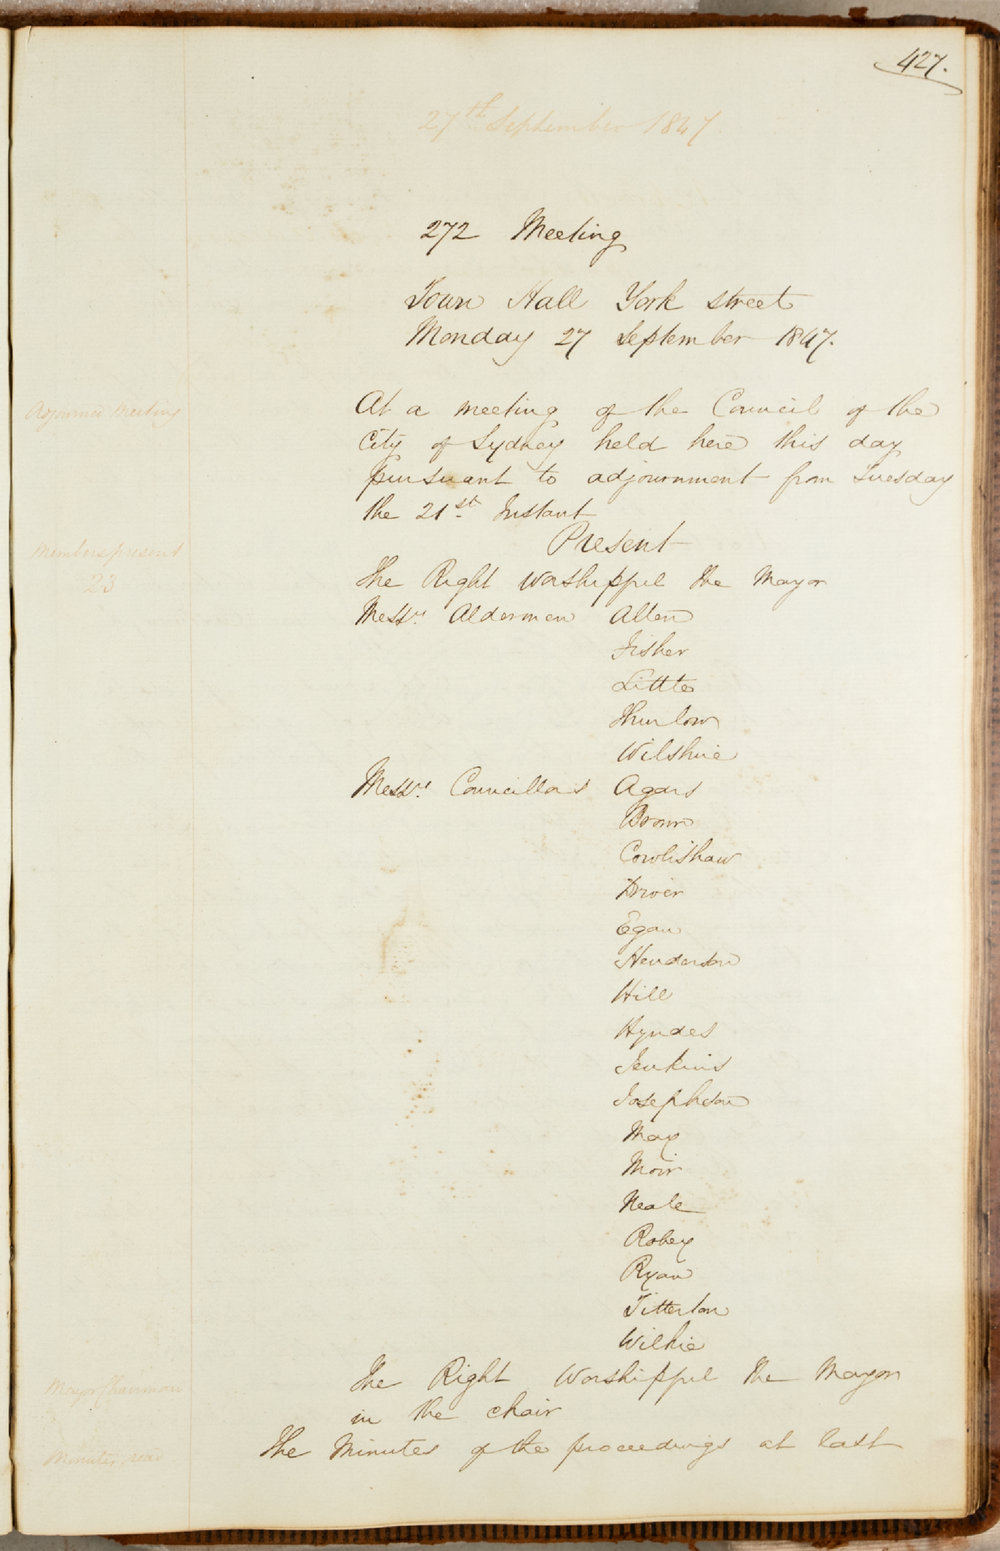 427.
27th September 1847
272 Meeting
Town Hall York street
Monday 27 September 1847.
Adjourned Meeting
At a meeting of the Council of the
City of Sydney held here this day
pursuant to adjournment from Tuesday
the 21st. Instant
Present
Members present
23
The Right Worshipful the Mayor
Messrs. Aldermen Allen
Fisher
Little
Thurlow
Wilshire
Messrs. Councillors Agars
Brown
Cowlishaw
Driver
Egan
Henderson
Hill
Hyndes
Jenkins
Josephson
May
Moir
Neale
Robey
Ryan
Titterton
Wilkie
Mayor Chairman
The Right Worshipful the Mayor
in the chair
Minutes read
The Minutes of the proceedings at last